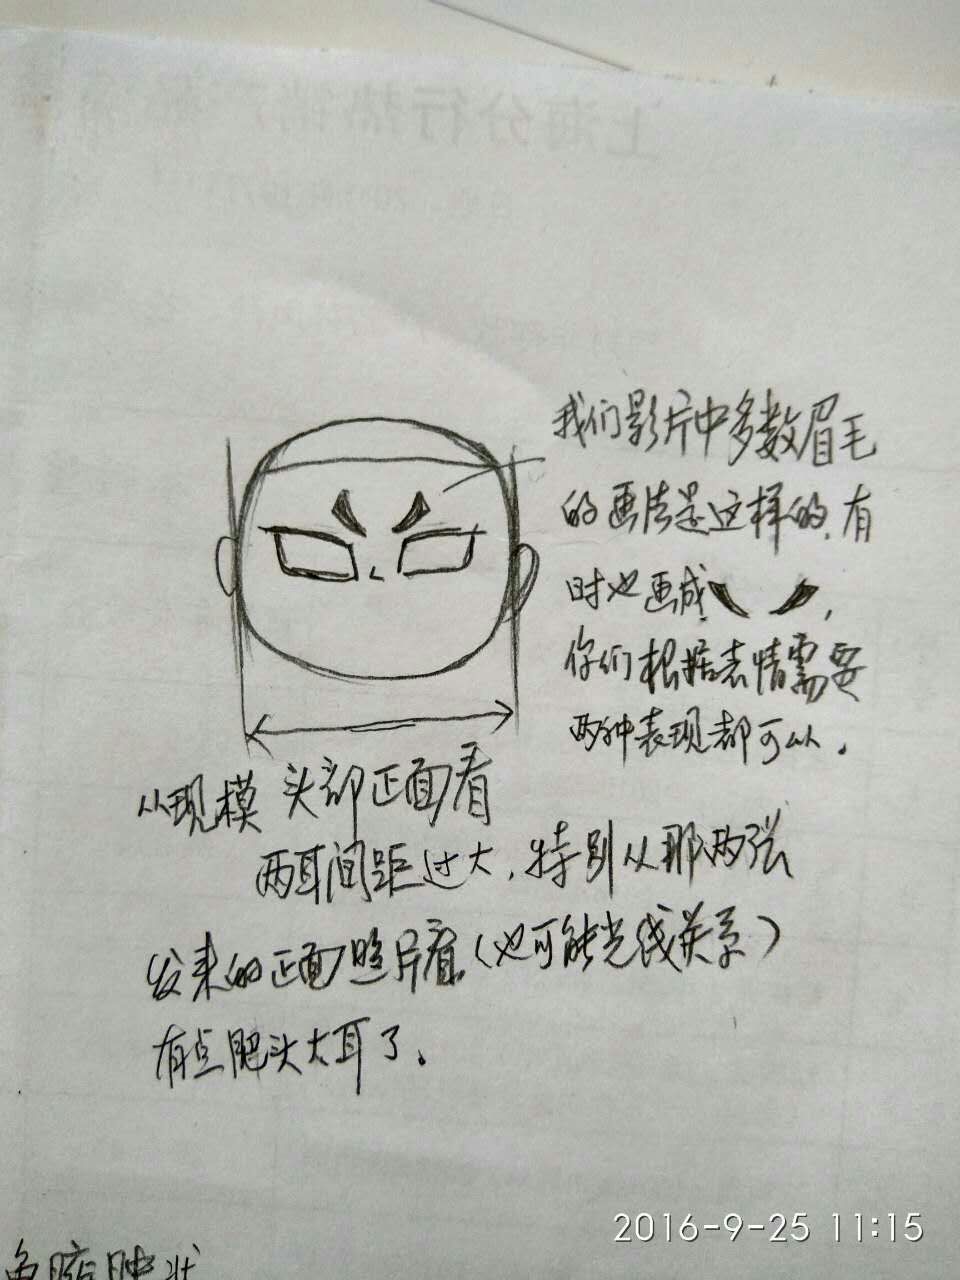 我们影片中多数眉毛
的画法是这样的.有
时也画成 ,
你们根据表情需要
两种表现都可以.
从现模 头部正面看
两耳间距过大.特别从那两张
发来的正面照片看.(也可能光线关系)
有点肥头大耳了.
2016-9-25 11:15
上海分行热销